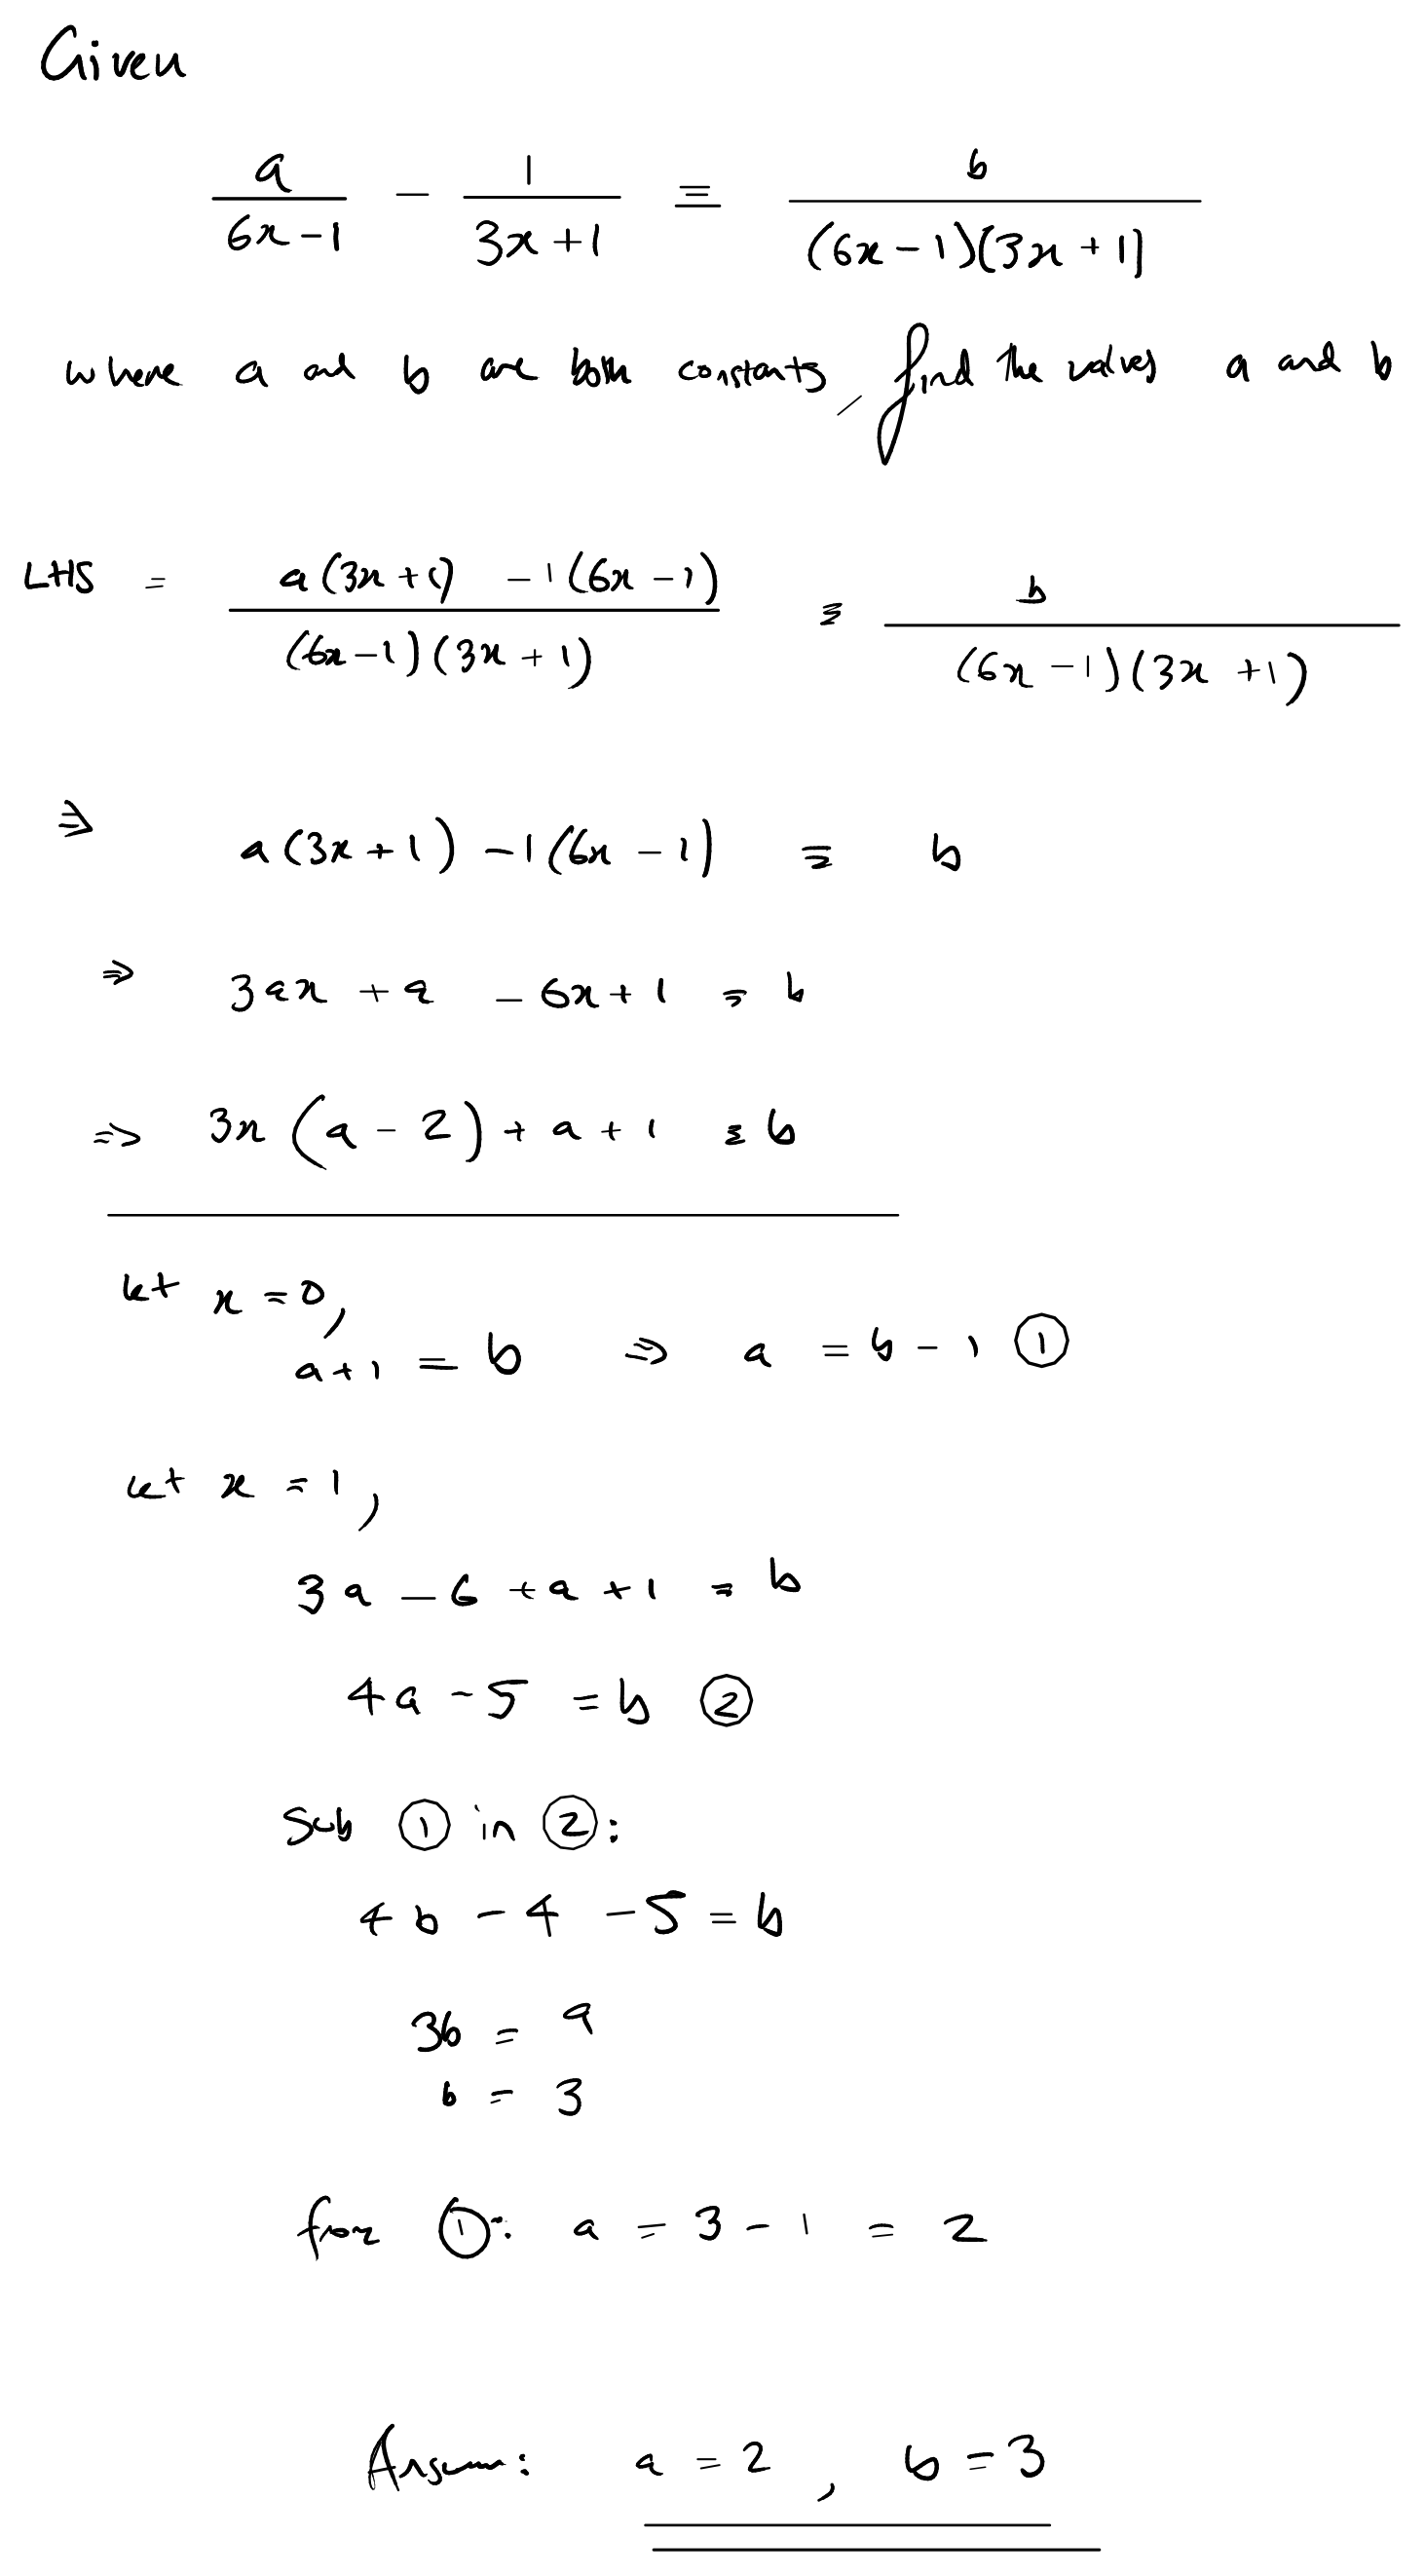 Given
a/(6x-1) - 1/(3x+1) ≡ b/((6x-1)(3x+1))
where a and b are both constants, find the values a and b
LHS = (a(3x+1) - 1(6x-1))/((6x-1)(3x+1)) ≡ b/((6x-1)(3x+1))
⇒ a(3x+1) - 1(6x-1) ≡ b
⇒ 3ax + a - 6x + 1 ≡ b
⇒ 3x(a-2) + a + 1 ≡ b
let x = 0,
a+1 = b ⇒ a = b - 1 ①
let x = 1,
3a - 6 + a + 1 = b
4a - 5 = b ②
Sub ① in ②:
4b - 4 - 5 = b
3b = 9
b = 3
from ①: a = 3 - 1 = 2
Answer: a = 2, b = 3